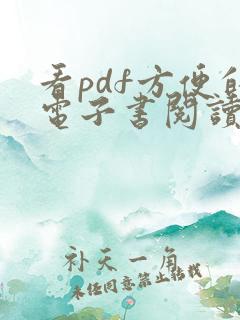 看pdf方便的
電子書閱讀
补天一角
未经同意禁止转载